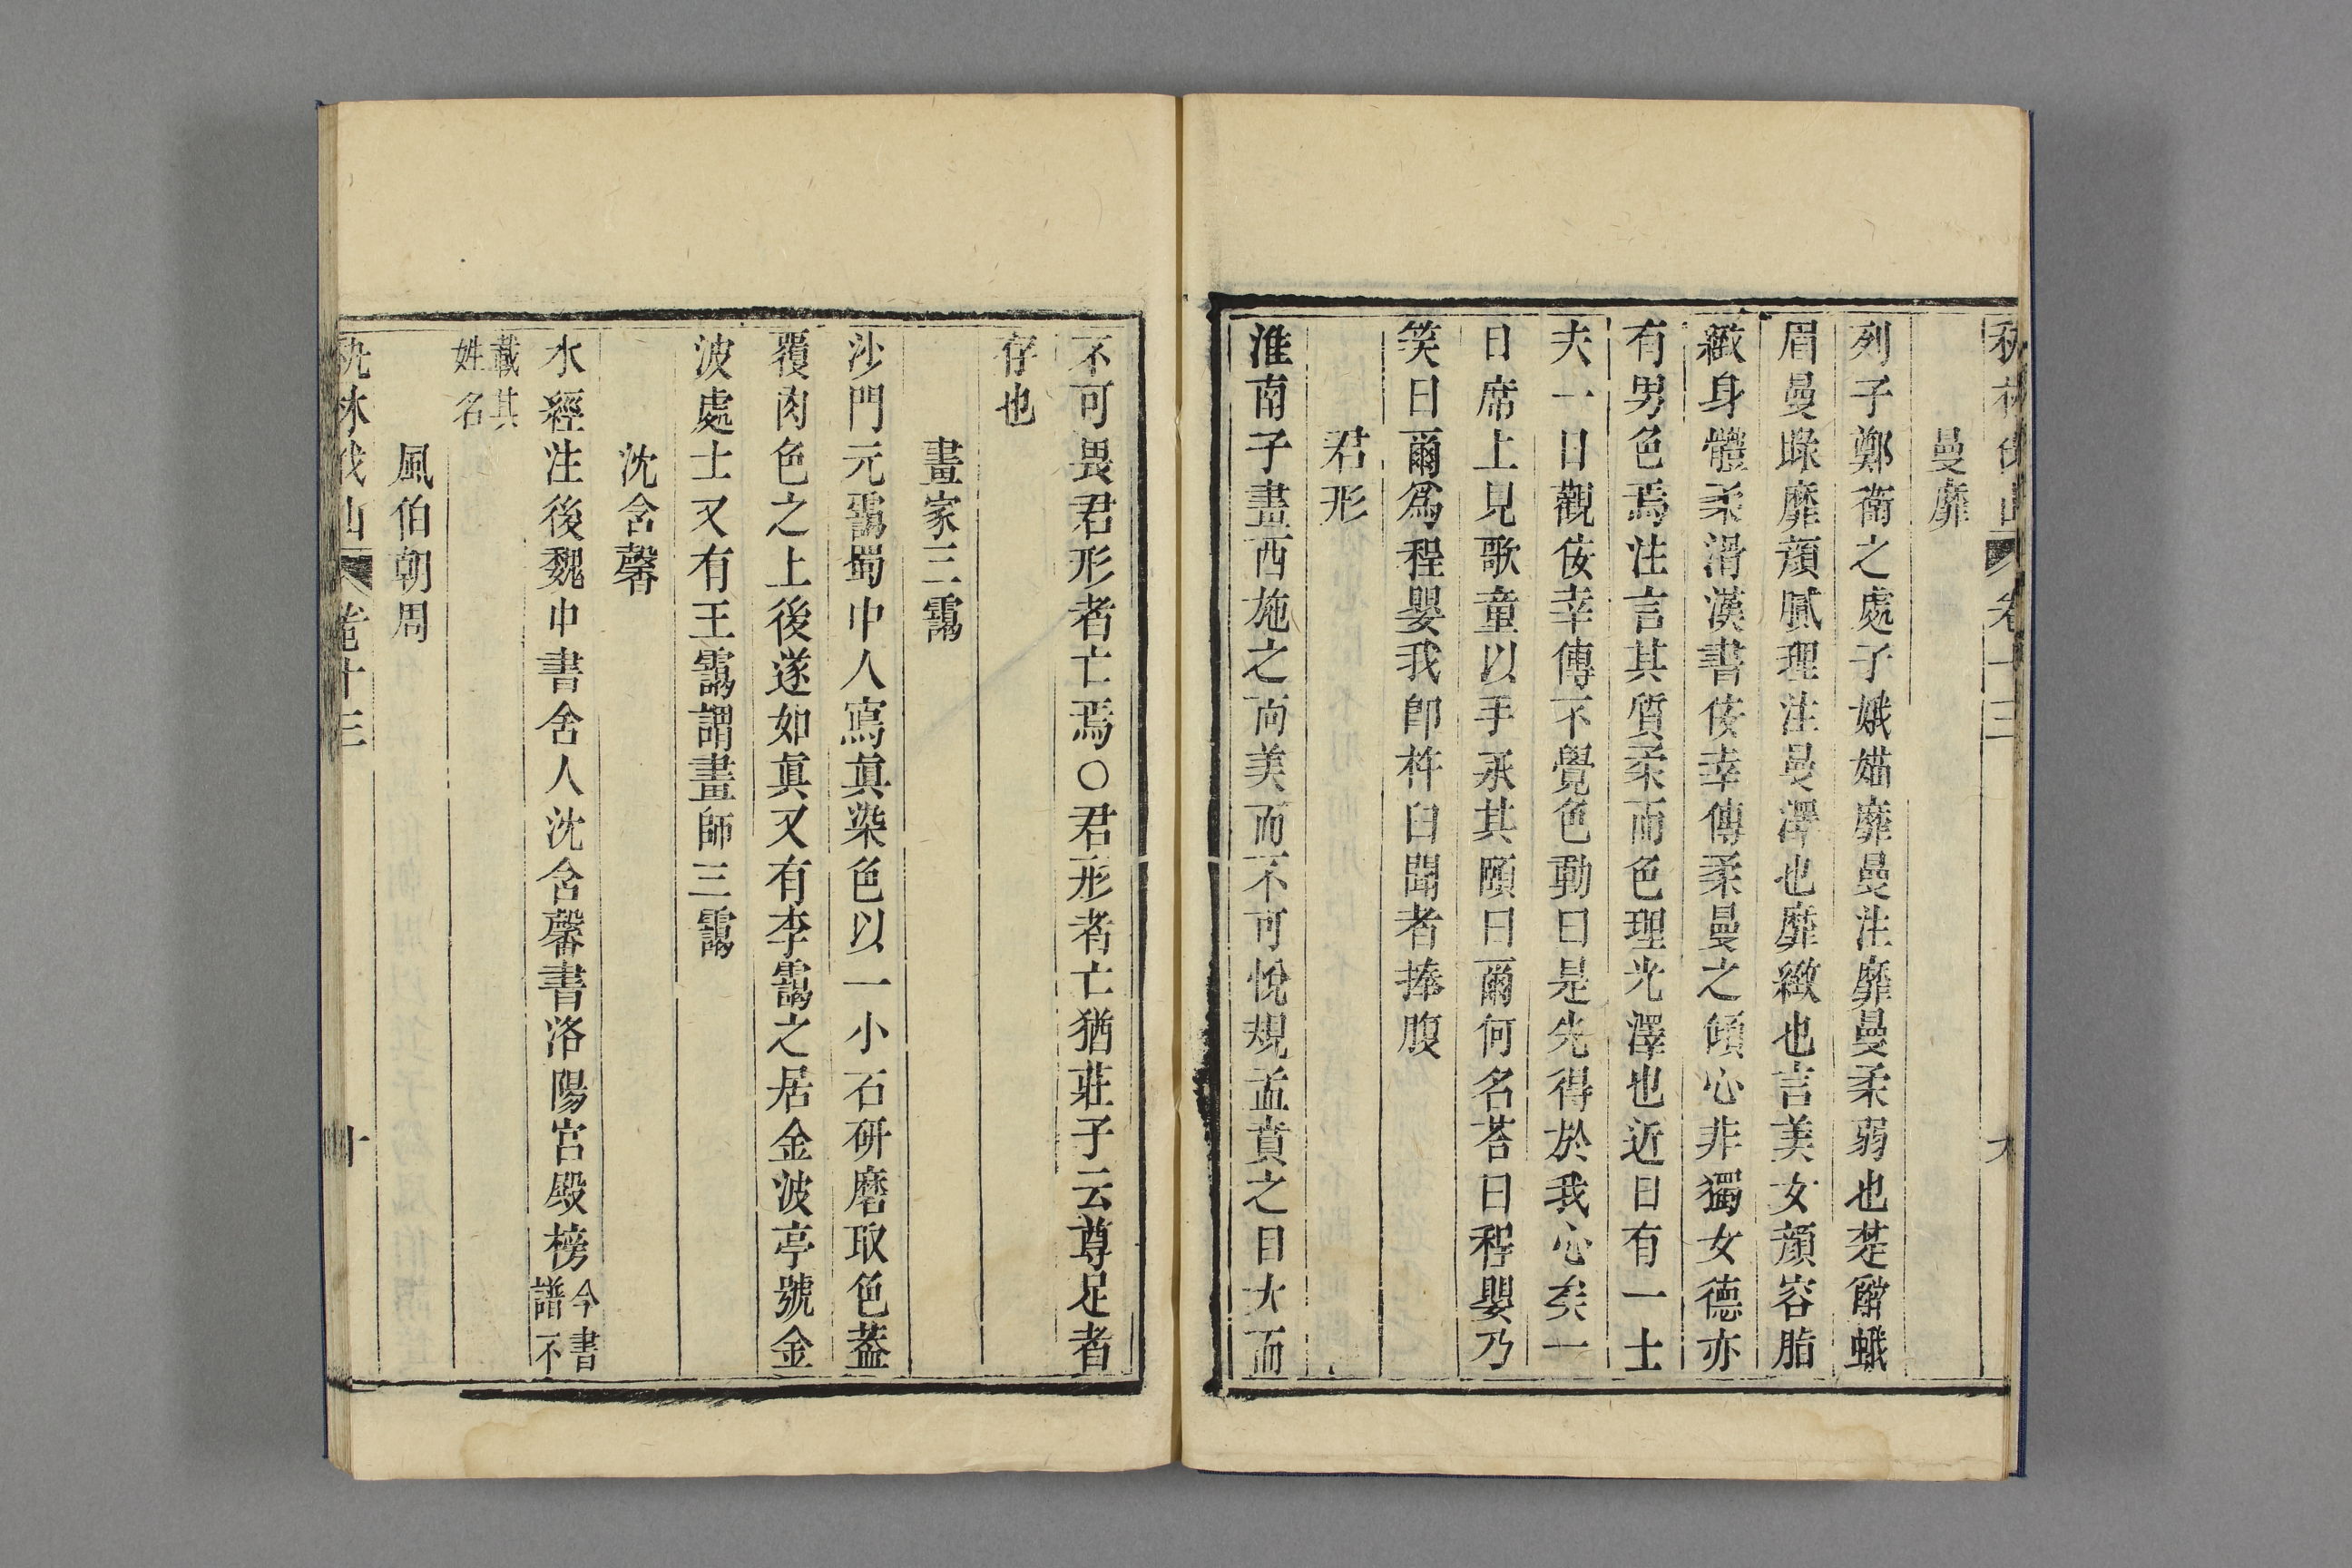 秇林伐山 卷十三 九
曼靡
列子鄭衞之處子娥媌靡曼注靡曼柔弱也楚辭蛾
眉曼睩靡顔膩理注曼澤也靡緻也言美女顔容脂
緻身體柔滑漢書佞幸傳柔曼之傾心非獨女德亦
有男色焉注言其質柔而色理光澤也近日有一士
夫一日觀佞幸傳不覺色動曰是先得於我心矣一
日席上見歌童以手承其頤曰爾何名荅曰程嬰乃
笑曰爾爲程嬰我卽杵臼聞者捧腹
君形
淮南子畫西施之面美而不可悅規孟賁之目大而
不可畏君形者亡焉○君形者亡猶莊子云尊足者
存也
畫家三靄
沙門元靄蜀中人寫眞染色以一小石研磨取色蓋
覆肉色之上後遂如眞又有李靄之居金波亭號金
波處士又有王靄謂畫師三靄
沈含馨
水經注後魏中書舍人沈含馨書洛陽宮殿榜今書譜不
載其姓名
風伯朝周
秇林伐山 卷十三 十